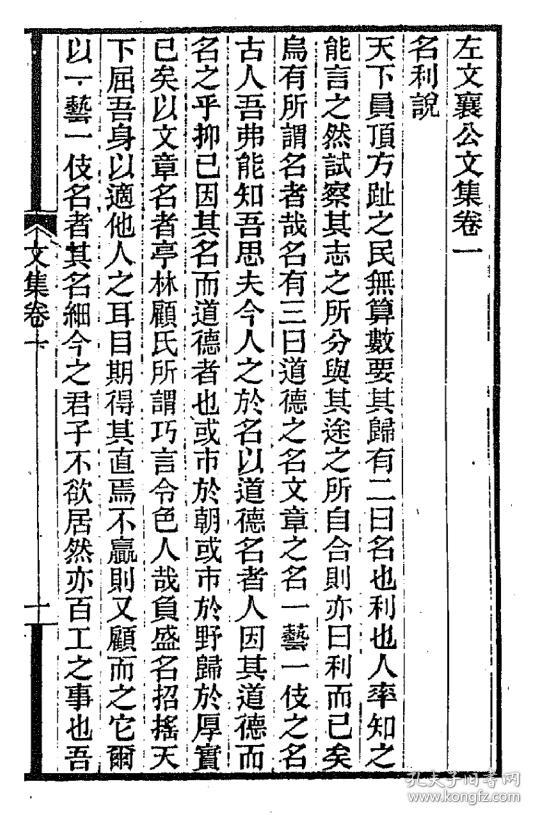 左文襄公文集卷一
名利說
天下員頂方趾之民無算數要其歸有二曰名也利也人率知之
能言之然試察其志之所分與其途之所自合則亦曰利而已矣
烏有所謂名者哉名有三曰道德之名文章之名一藝一伎之名
古人吾弗能知吾思夫今人之於名以道德名者人因其道德而
名之乎抑己因其名而道德者也或市於朝或市於野歸於厚實
已矣以文章名者亭林顧氏所謂巧言令色人哉負盛名招搖天
下屈吾身以適他人之耳目期得其直焉不贏則又顧而之它爾
以一藝一伎名者其名細今之君子不欲居然亦百工之事也吾
文集卷一
一
孔夫子旧书网
www.kongfz.com